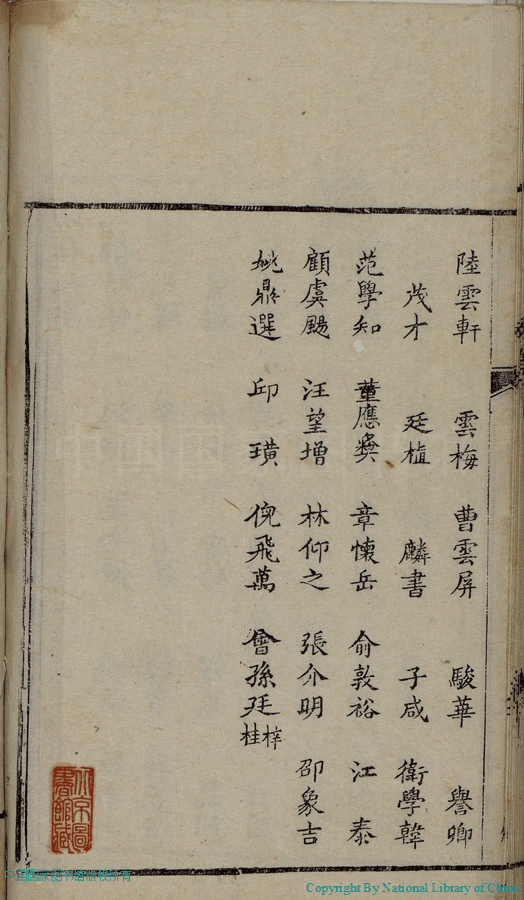 陸雲軒　雲梅　曹雲屏　駿華　譽卿
茂才　廷植　麟書　子咸　衛學韓
范學知　董應奬　章懷岳　俞敦裕　江泰
顧虞颺　汪望增　林仰之　張介明　邵象吉
姚鼎選　邱璜　倪飛萬　會孫廷梓桂
北京圖書館藏
Copyright By National Library of China